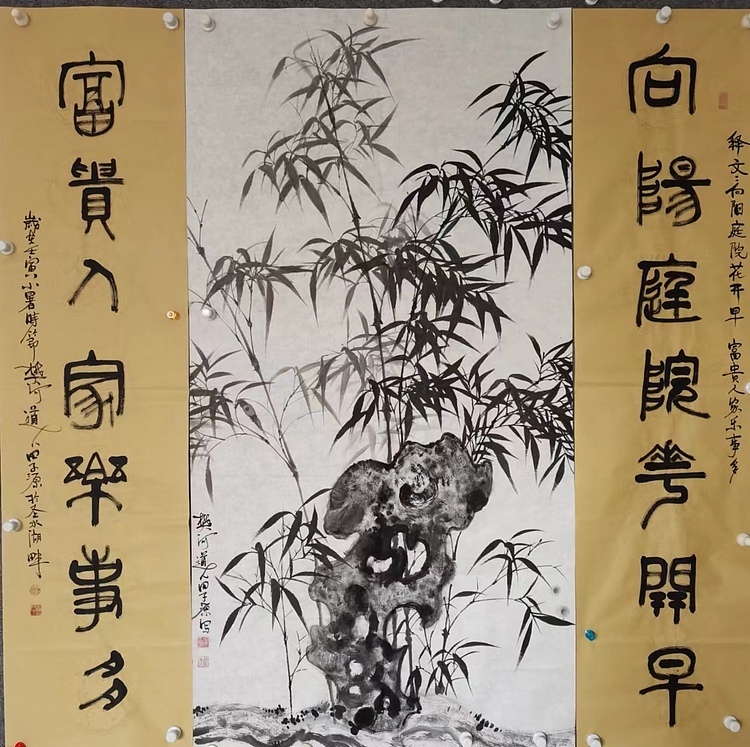 向陽庭院華開早
释文：向阳庭院花开早 富贵人家乐事多
道人田子源写
富貴人家樂事多
歲在壬寅小暑時節 道人田子源於圣水湖畔